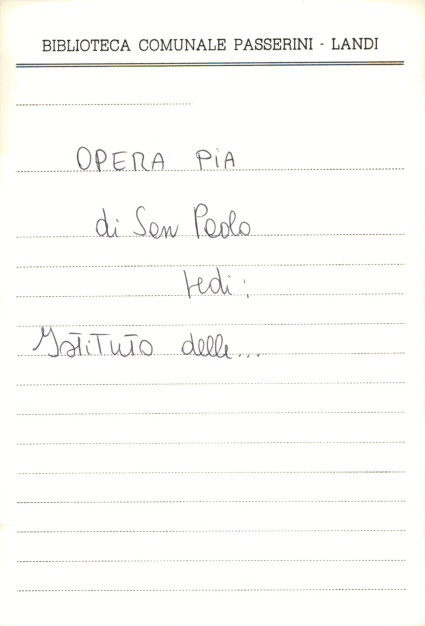 BIBLIOTECA COMUNALE PASSERINI - LANDI
OPERA PIA
di San Paolo
vedi:
Istituto delle...